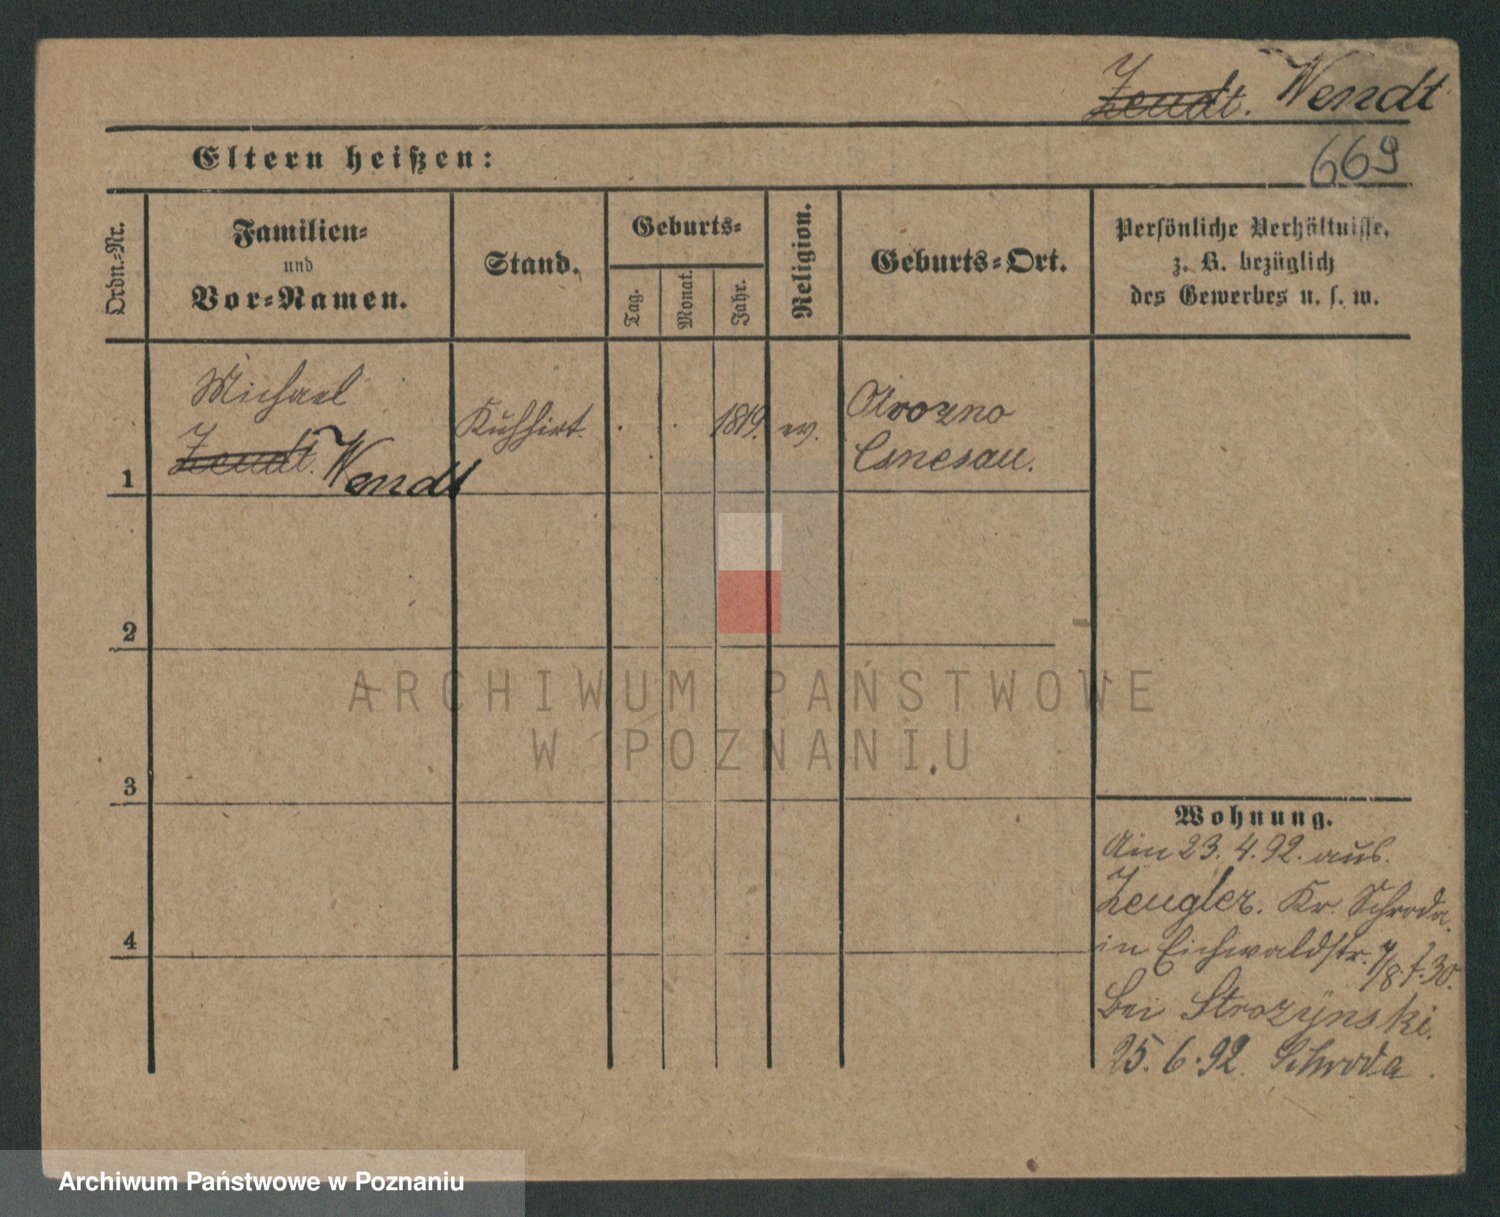 Zendt. Wendt
669
Eltern heißen:
Ordn.-Nr.
Familien-
und
Vor-Namen.
Stand.
Geburts-
Tag.
Monat.
Jahr.
Religion.
Geburts-Ort.
Persönliche Verhältnisse,
z. B. bezüglich
des Gewerbes u. s. w.
1
Michael
Zendt. Wendt
Kuhhirt.
1819.
ev.
2
3
4
Wohnung.
Am 23. 4. 92. aus.
Kr. Schroda.
in Eichwaldstr. 7/8.
bei Strozynski.
25. 6. 92. Schroda.
ARCHIWUM PAŃSTWOWE
W POZNANIU
Archiwum Państwowe w Poznaniu